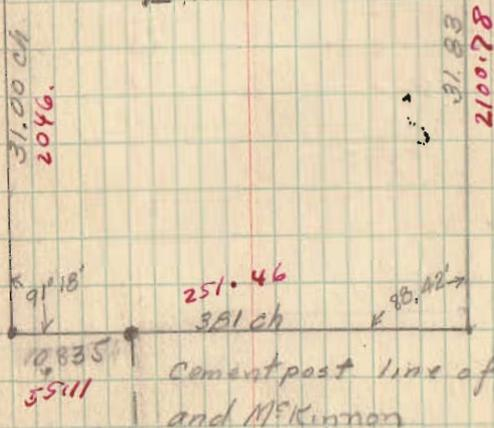 31.00 ch
2046.
31.83
2100.78
91°18'
251.46
88.42'
381 ch
0.835
55.11
Cementpost line of
and McKinnon